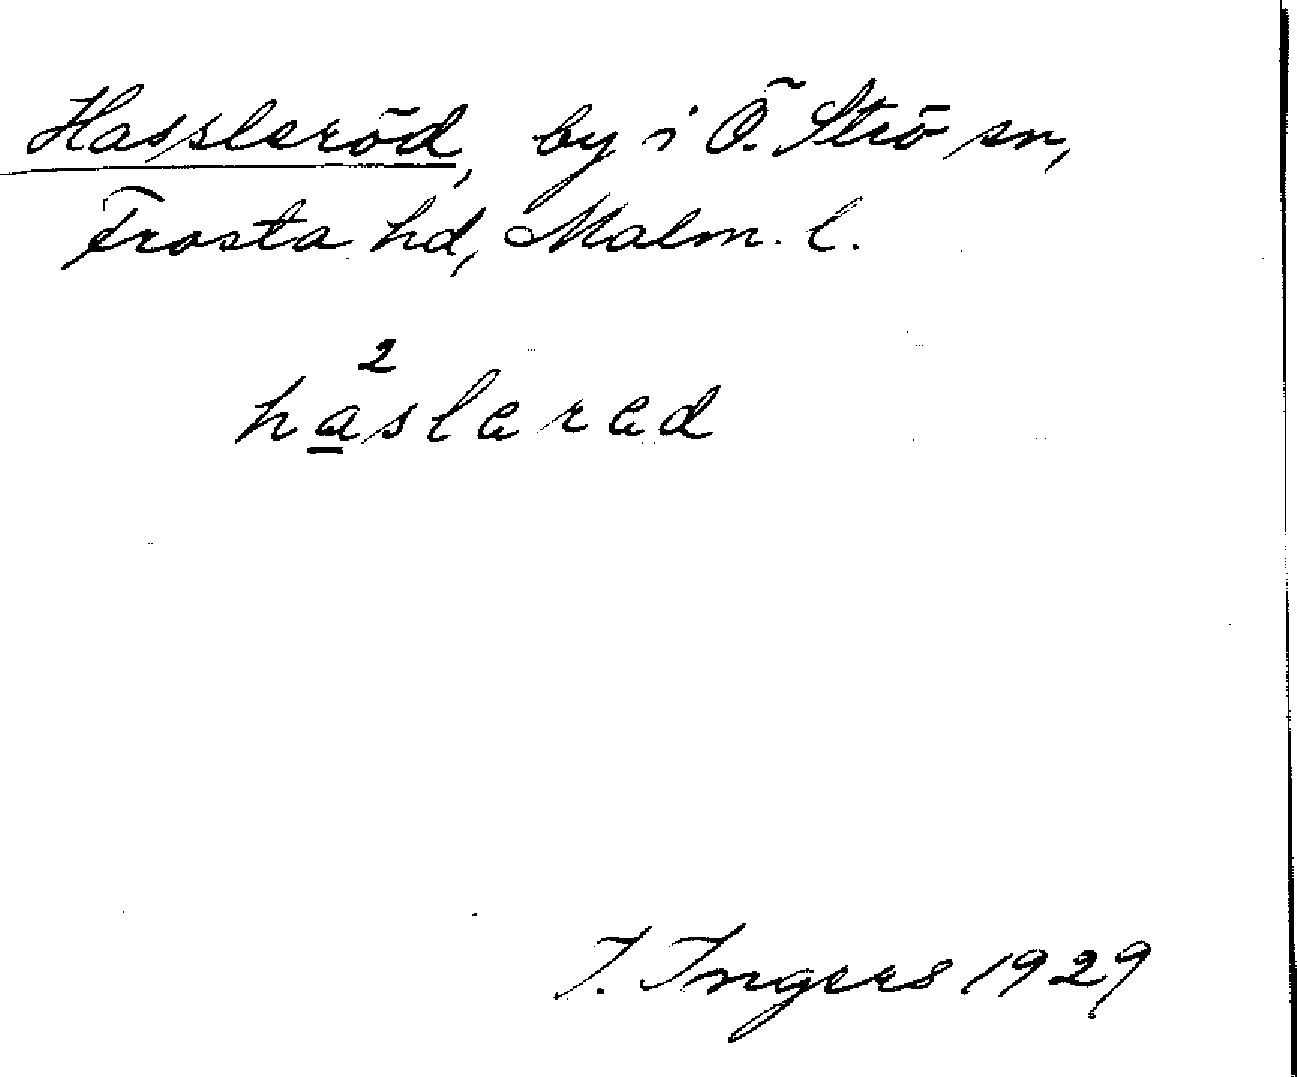 Hassleröd, by i Ö. Strö sn,
Frosta hd, Malm. l.
2
haslered
I. Ingers 1929